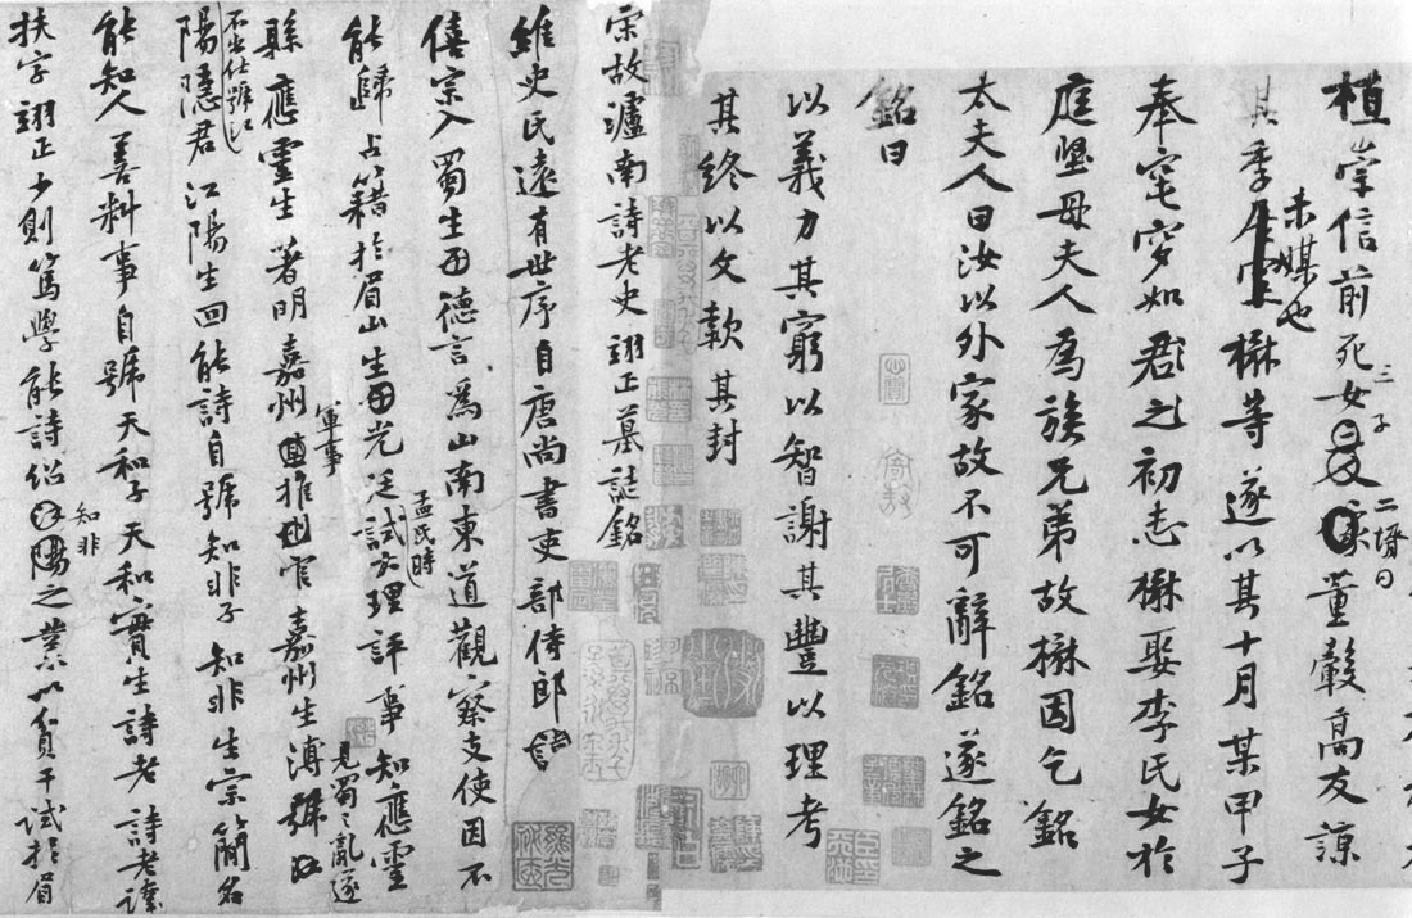 植崇信前死女三子二壻曰董轂高友諒
其季未媒也楙等遂以其十月某甲子
奉窀穸如君之初志楙娶李氏女於
庭堅母夫人為族兄弟故楙因乞銘
太夫人曰汝以外家故不可辭銘遂銘之
銘曰
以義力其窮以智謝其豐以理考
其終以文款其封
宋故瀘南詩老史翊正墓誌銘
維史氏遠有世序自唐尚書吏部侍郎
僖宗入蜀生德言為山南東道觀察支使因不
能歸占籍於眉山生光廷孟氏時試大理評事知應靈
縣應靈生著明嘉州軍事推官嘉州生溥見蜀之亂遂
不出仕號江陽隱君江陽生回能詩自號知非子知非生宗簡名
能知人善料事自號天和子天和實生詩老詩老諱
扶字翊正少則篤學能詩紹知非之業以貧干試於眉